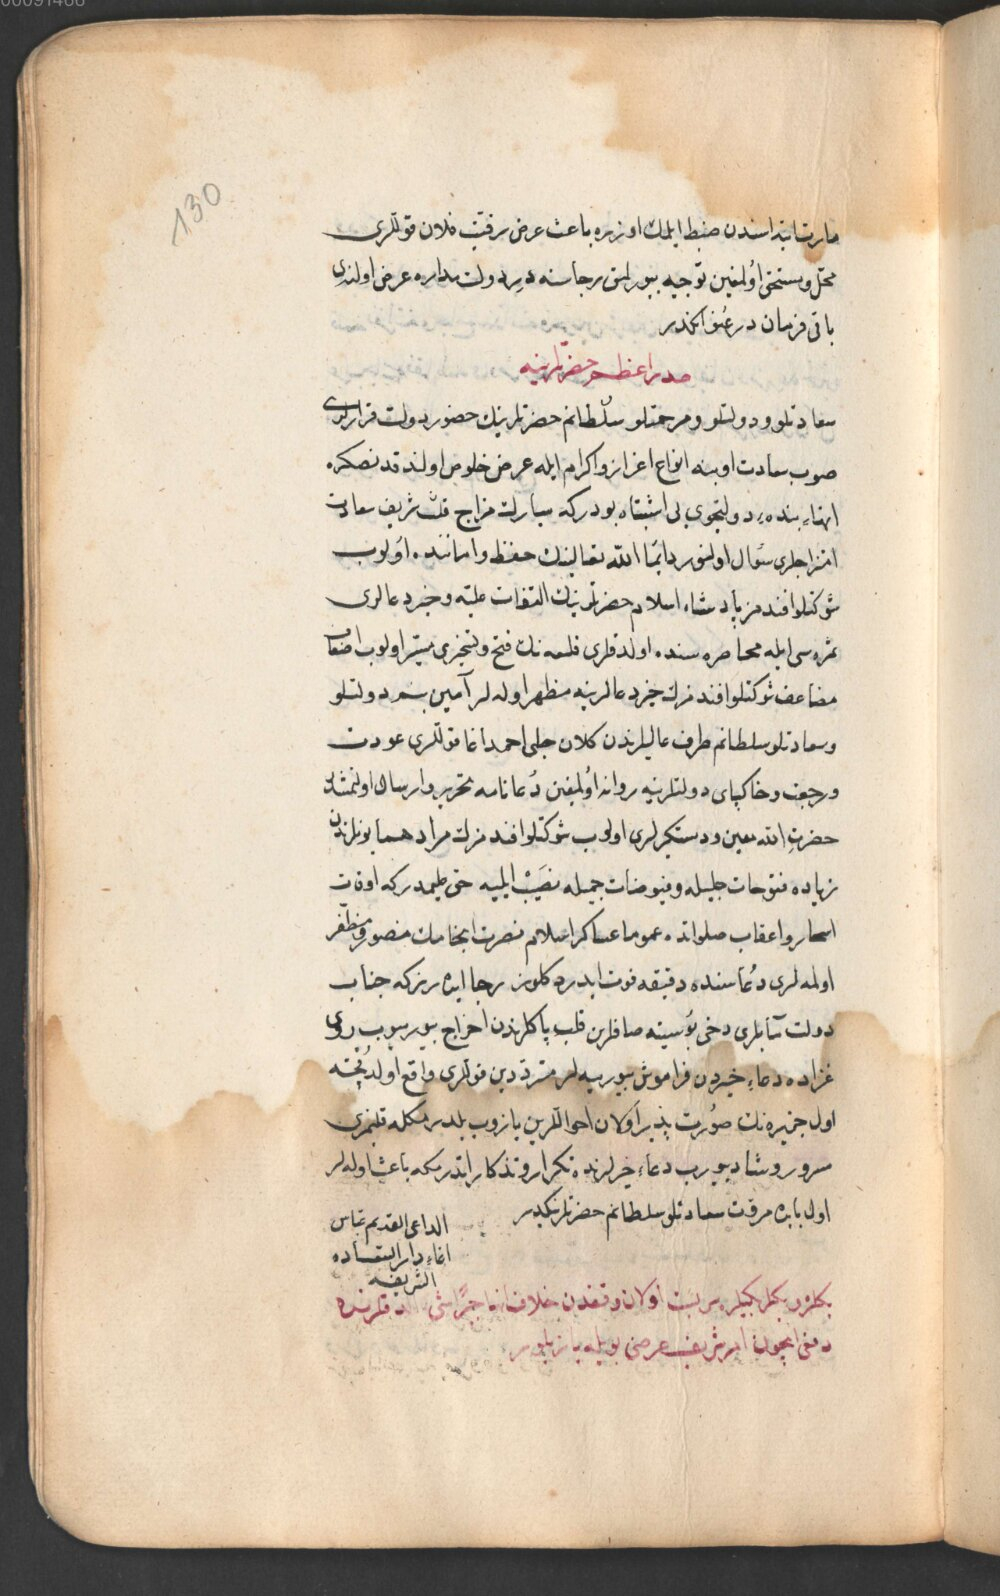 00091466
130
مارت ابتداسندن ضبط ایلمك اوزره باعث عرض رقیت فلان قوللری
محل ومستحق اولمغین توجیه بیورلمق رجاسنه در دولتمداره عرض اولندی
باقی فرمان در عدلكدر
صدر اعظم حضرتلرینه
سعادتلو ودولتلو ومرحمتلو سلطانم حضرتلرینك حضور دولت قرارلری
صوب سعادت اوبنه انواع اعزاز واكرام ایله عرض خلوص اولندقدنصكره
انهاء بنده دولتجوی بی اشتباه بودركه مبارك مزاج شریف سعادت
امتزاجلری سؤال اولنور دایما الله تعالینك حفظ واماننده اولوب
شوكتلو افندمز پادشاه اسلام حضرتلرینك التفات علیه وخیر دعالری
ثمره سی ایله محاصره سنده اولدقلری قلعه نك فتح وتسخیری میسر اولوب اضعاف
مضاعف شوكتلو افندمزك خیر دعالرینه مظهر اوله لر آمین بنم دولتلو
وسعادتلو سلطانم طرف عالیلرندن كلان چلبی احمد اغا قوللری عودت
ورجعت وخاكپای دولتلرینه روانه اولمغین دعانامه تحریر وارسال اولنمشدر
حضرت الله معین ودستكیرلری اولوب شوكتلو افندمزك مراد همایونلرندن
زیاده فتوحات جلیله وفیوضات جمیله نصیب ایلیه حق علیمدركه اوقات
اسحار واعقاب صلواتده عموما عساكر اسلام نصرت انجامك منصور ومظفر
اولمه لری دعاسنده دقیقه فوت ایدرد كلوز رجا ایده رزكه جناب
دولت مآبلری دخی بو سینه صافلرین قلب پاكلرندن اخراج بیورمیوب روی
غزاده دعاء خیردن فراموش بیورمیه لر متردددین قوللری واقع اولدقچه
اول جزیره نك صورت پذیر اولان احواللرین یازوب بلدرمكله قلبمزی
مسرور وشاد بیورب دعاء خیرلرنده تكرار وتذكار ایتدرمكه باعث اوله لر
اول بابده مروت سعادتلو سلطانم حضرتلرنكدر
الداعی القدیم عباس
اغاء دار السعاده
الشریفه
بكلر وبكلربكیلره مربت اولان وقفدن خلاف انها جبرا شی الدقلرنده
دفعی ایچون امر شریف عرضی بویله یازیلور